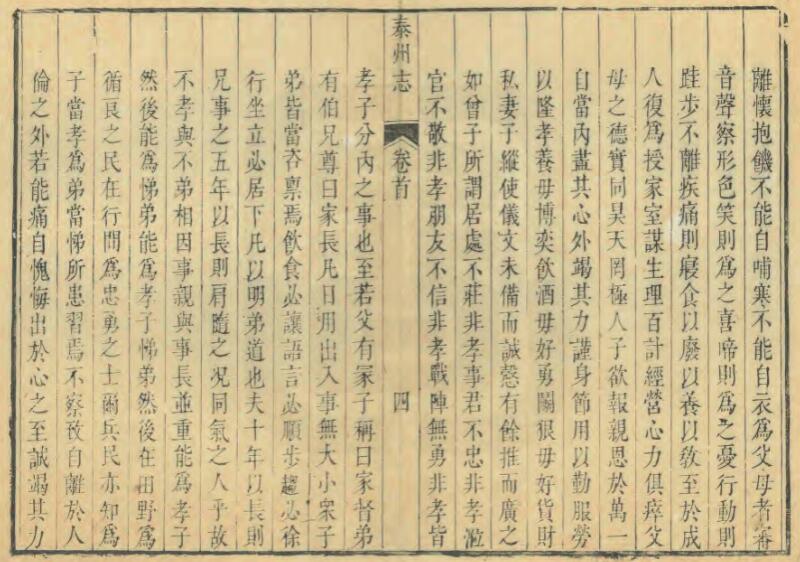 離懷抱饑不能自哺寒不能自衣爲父母者審
音聲察形色笑則爲之喜啼則爲之憂行動則
跬步不離疾痛則寢食以廢以養以敎至於成
人復爲授家室謀生理百計經營心力俱瘁父
母之德實同昊天罔極人子欲報親恩於萬一
自當內盡其心外竭其力謹身節用以勤服勞
以隆孝養毋博奕飮酒毋好勇鬭狠毋好貨財
私妻子縱使儀文未備而誠慤有餘推而廣之
如曾子所謂居處不莊非孝事君不忠非孝涖
官不敬非孝朋友不信非孝戰陣無勇非孝皆
泰州志 卷首 四
孝子分內之事也至若父有冢子稱曰家督弟
有伯兄尊曰家長凡日用出入事無大小衆子
弟皆當咨禀焉飮食必讓語言必順步趨必徐
行坐立必居下凡以明弟道也夫十年以長則
兄事之五年以長則肩隨之况同氣之人乎故
不孝與不弟相因事親與事長並重能爲孝子
然後能爲悌弟能爲孝子悌弟然後在田野爲
循良之民在行間爲忠勇之士爾兵民亦知爲
子當孝爲弟當悌所患習焉不察致自離於人
倫之外若能痛自愧悔出於心之至誠竭其力